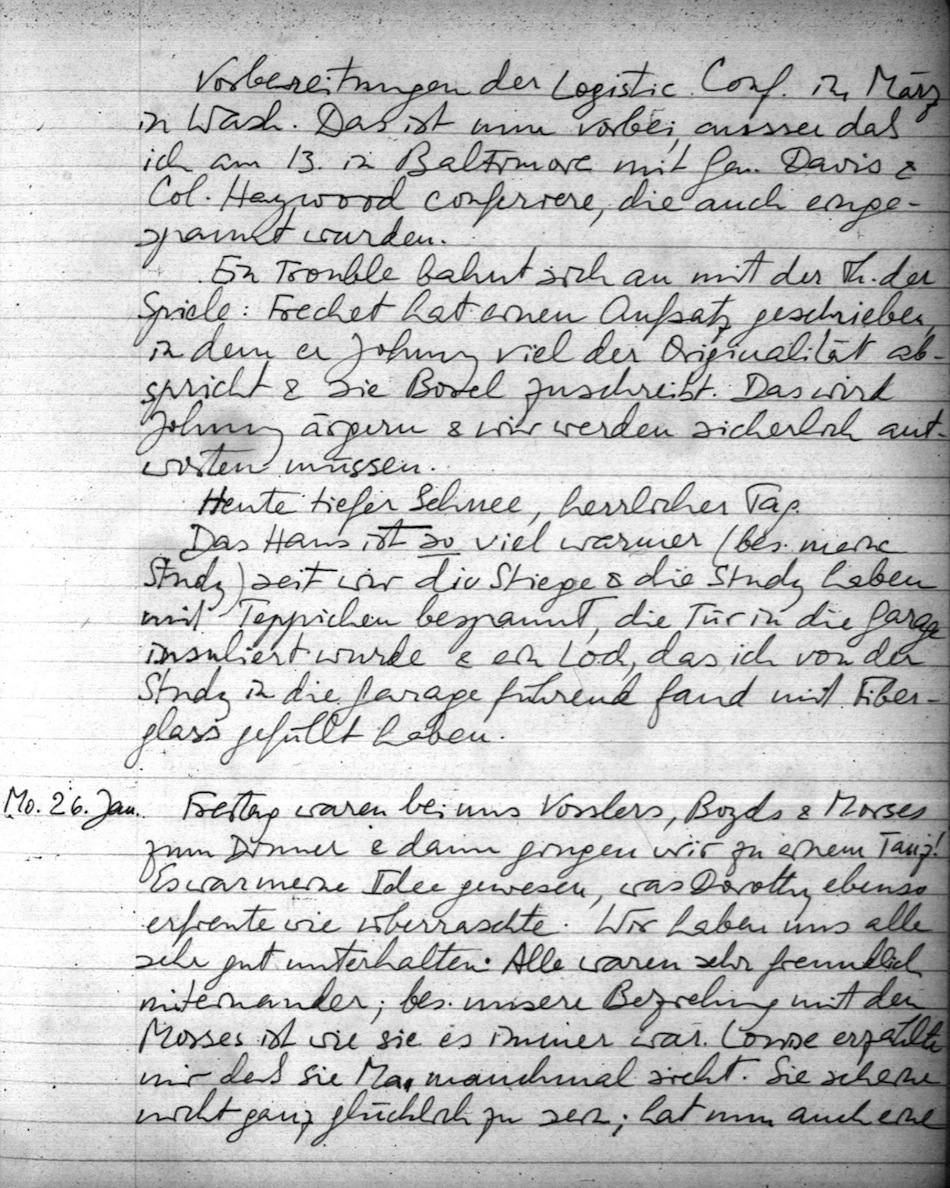 Vorbereitungen der Logistic Conf. in März
in Wash. Das ist nun vorbei, ausser daß
ich am 13. in Baltimore mit Gen. Davis &
Col. Haywood conferiere, die auch einge-
spannt wurden.
Ein Trouble bahnt sich an mit der Th. der
Spiele: Frechet hat einen Aufsatz geschrieben,
in dem er Johnny viel der Originalität ab-
spricht & sie Borel zuschreibt. Das wird
Johnny ärgern & wir werden sicherlich ant-
worten müssen.
Heute tiefer Schnee, herrlicher Tag.
Das Haus ist so viel wärmer (bes. meine
Study) seit wir die Stiege & die Study haben
mit Teppichen bespannt, die Tür in die Garage
insuliert wurde & ein Loch, das ich von der
Study in die Garage führend fand mit Fiber-
glass gefüllt haben.
Mo. 26. Jan. Freitag waren bei uns Vosslers, Boyds & Morses
zum Dinner & dann gingen wir zu einem Tanz!
Es war meine Idee gewesen, was Dorothy ebenso
erfreute wie überraschte. Wir haben uns alle
sehr gut unterhalten. Alle waren sehr freundlich
miteinander; bes. unsere Beziehung mit den
Morses ist wie sie es immer war. Louise erzählte
mir daß sie Ma. manchmal sieht. Sie scheine
nicht ganz glücklich zu sein; hat nun auch eine